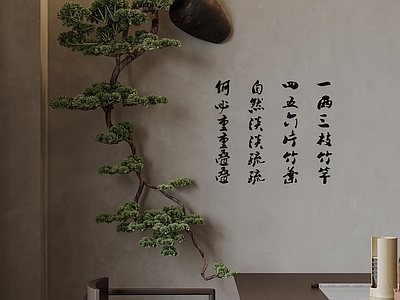 一两三枝竹竿
四五六片竹叶
自然淡淡疏疏
何必重重叠叠